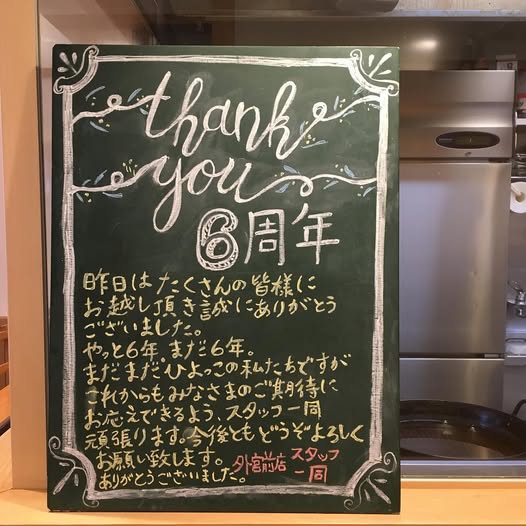 thank
you
6周年
昨日はたくさんの皆様に
お越し頂き誠にありがとう
ございました。
やっと6年、まだ6年。
まだまだひよっこの私たちですが
これからもみなさまのご期待に
お応えできるよう、スタッフ一同
頑張ります。今後ともどうぞよろしく
お願い致します。
ありがとうございました。
外宮前店 スタッフ
一同